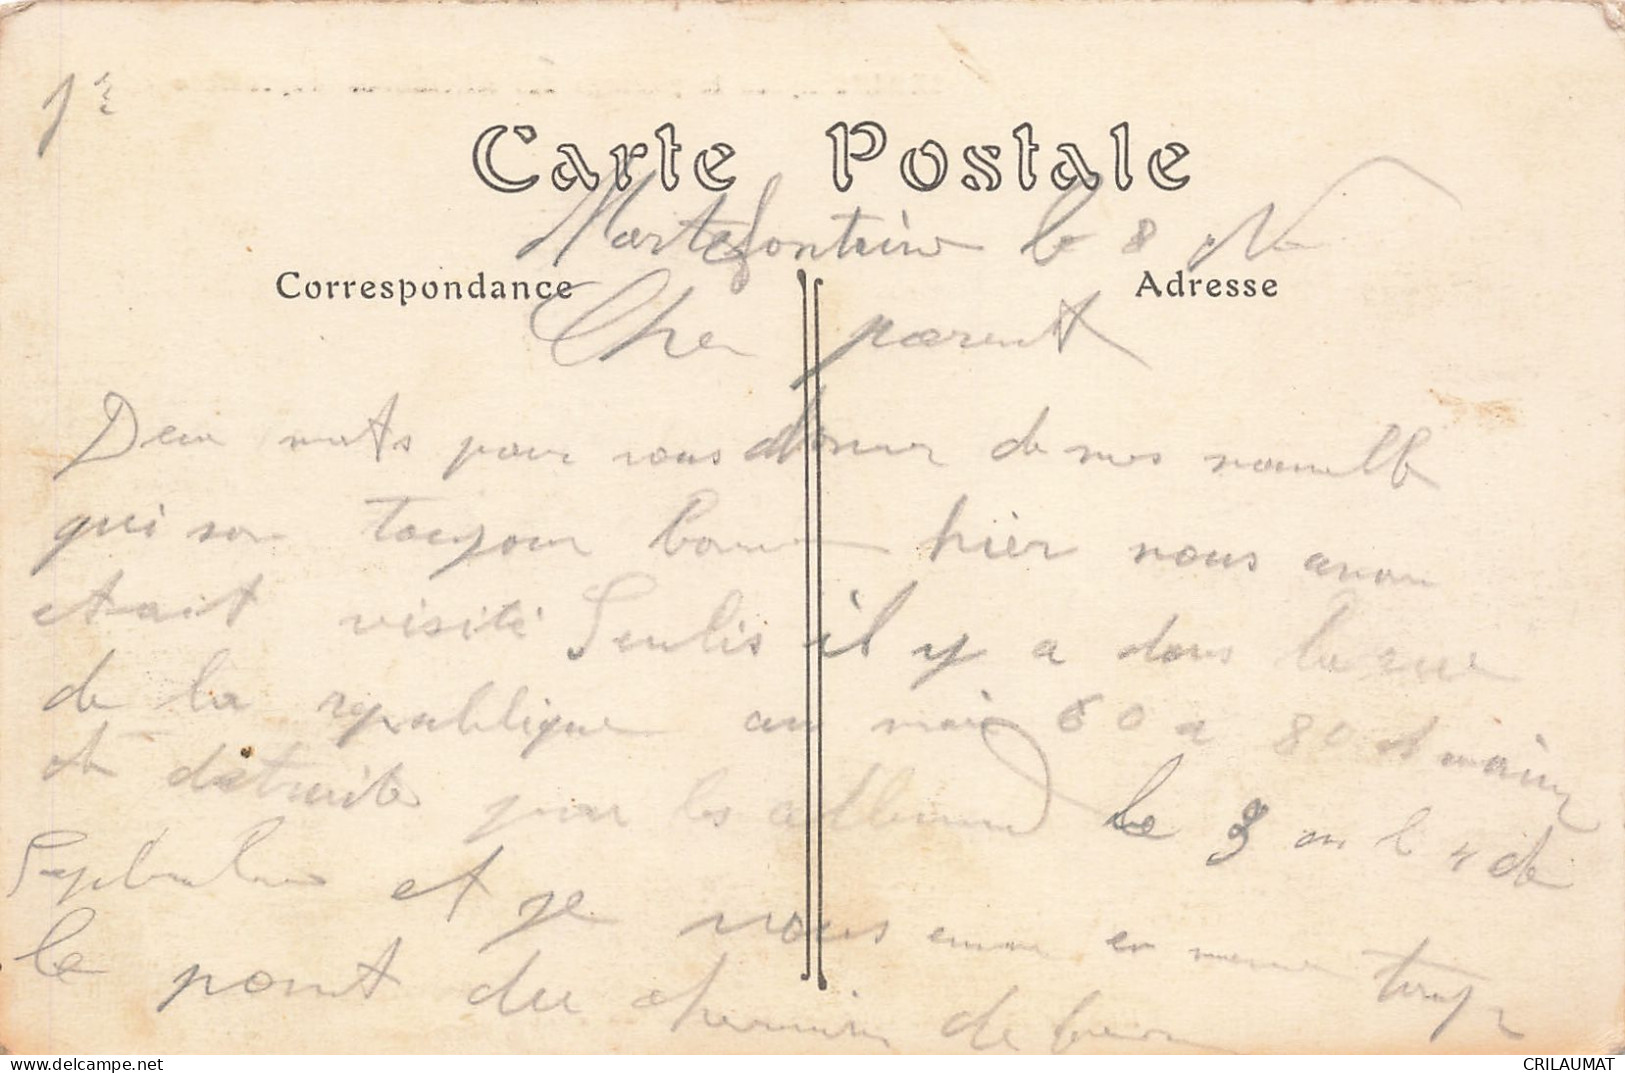 1e
Carte Postale
Mortefontaine le 8 N
Correspondance
Adresse
Cher parent
Deux mots pour vous donner de mes nouvelle
qui son toujour bonne hier nous avon
etait visité Senlis il y a dans la rue
de la republique au moin 60 a 80 maison
de detruite par les allemand le 3 ou le 4 de
Septembre et je vous envoie en meme temp
le pont du chemin de fer
delcampe.net
CRILAUMAT